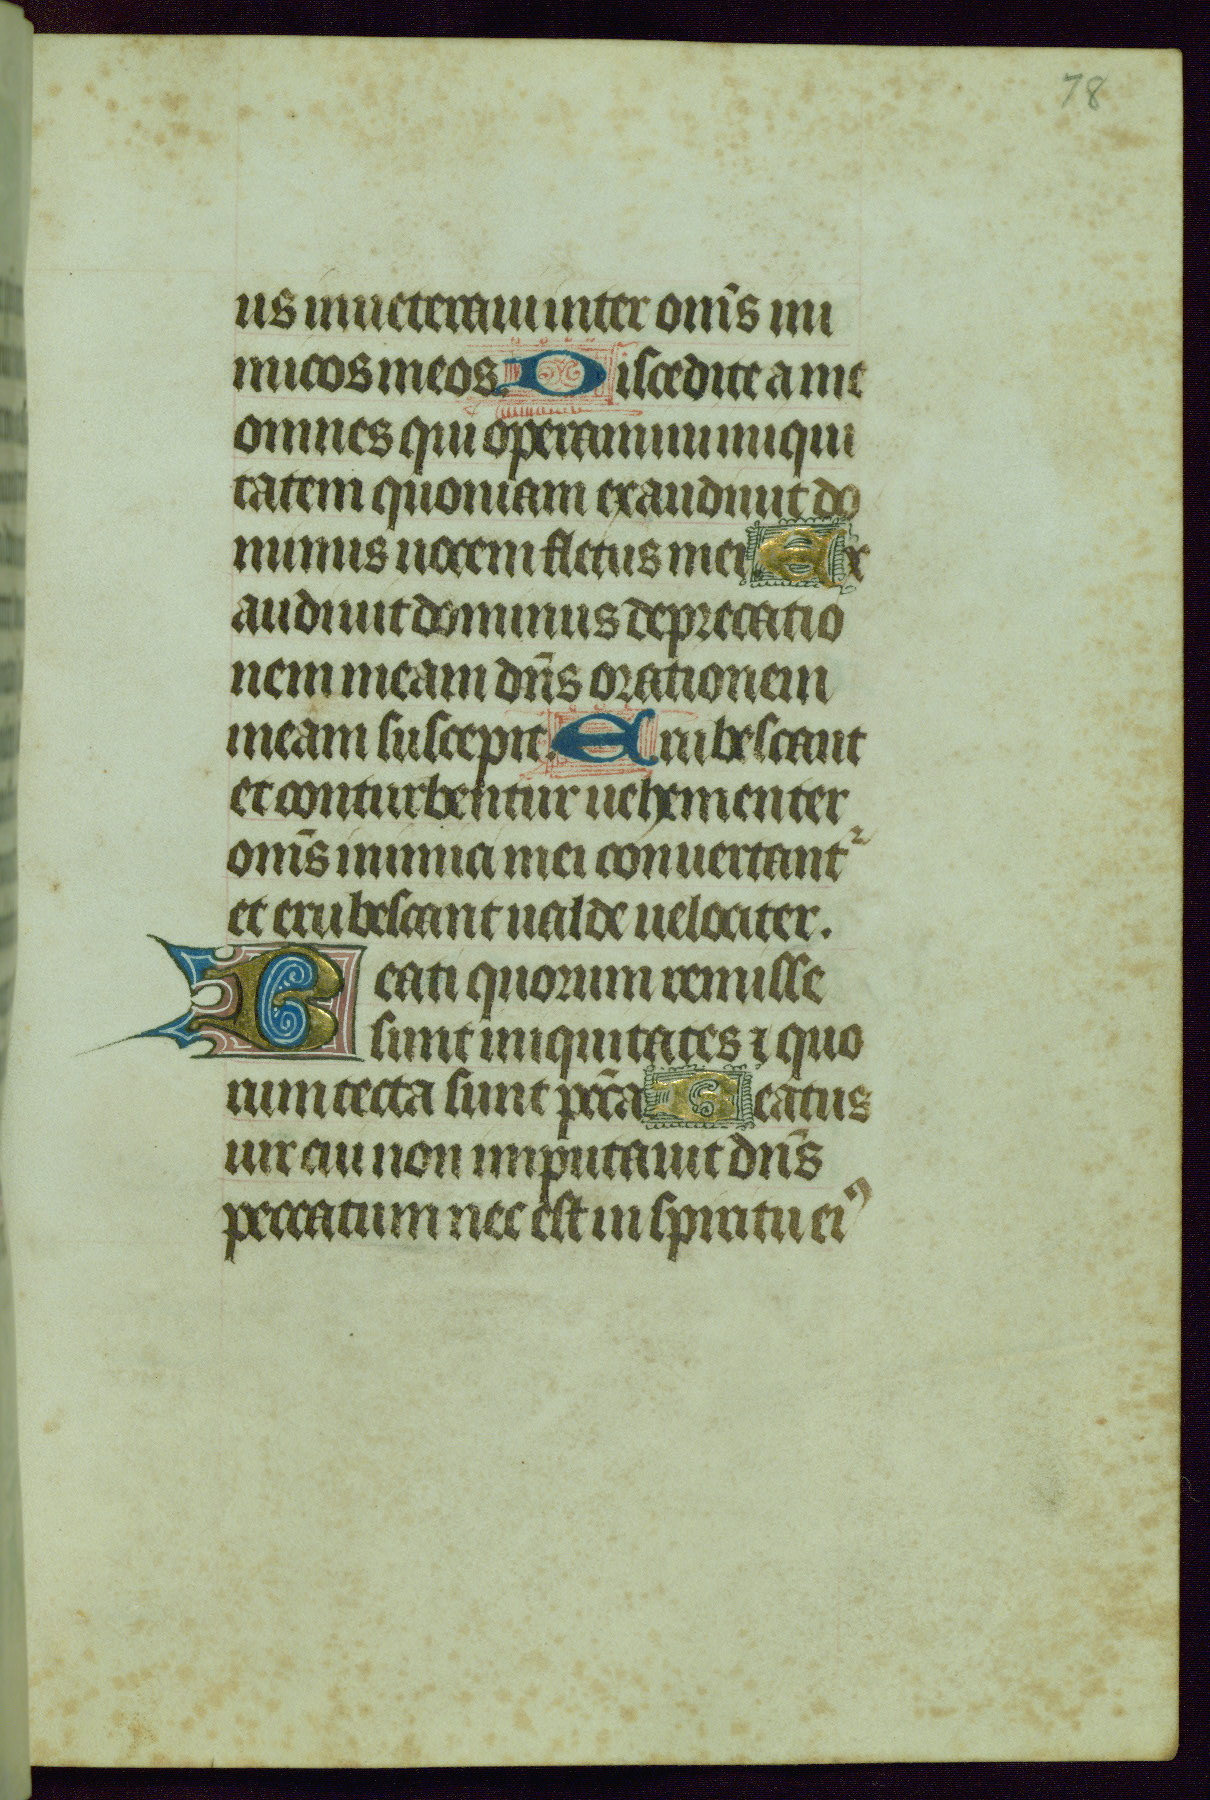 78
us inueteraui inter om̄s ini
micos meos. Discedite a me
omnes qui operamini iniqui
tatem quoniam exaudiuit do
minus uocem fletus mei Ex
audiuit dominus deprecatio
nem meam dn̄s orationem
meam suscepit. Erubescant
et conturbentur uehementer
om̄s inimici mei conuertantᷣ
et erubescant ualde uelociter.
Beati quorum remisse
sunt iniquitates ⁊ quo
rum tecta sunt pcc̄a Beatus
uir cui non imputauit dn̄s
peccatum nec est in spiritu eiꝰ